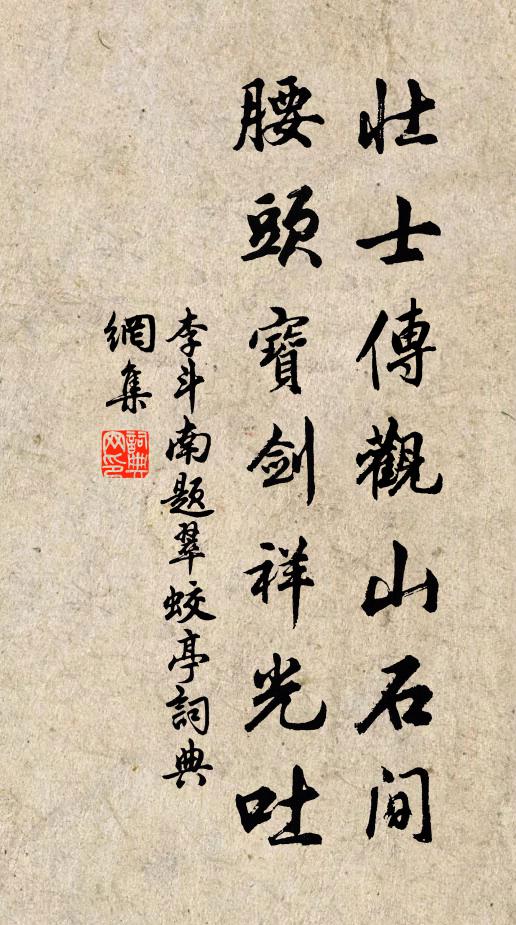 壮士傳觀山石间
腰頭寶劍祥光吐
李斗南题翠蛟亭詞典
網集
詞典网印